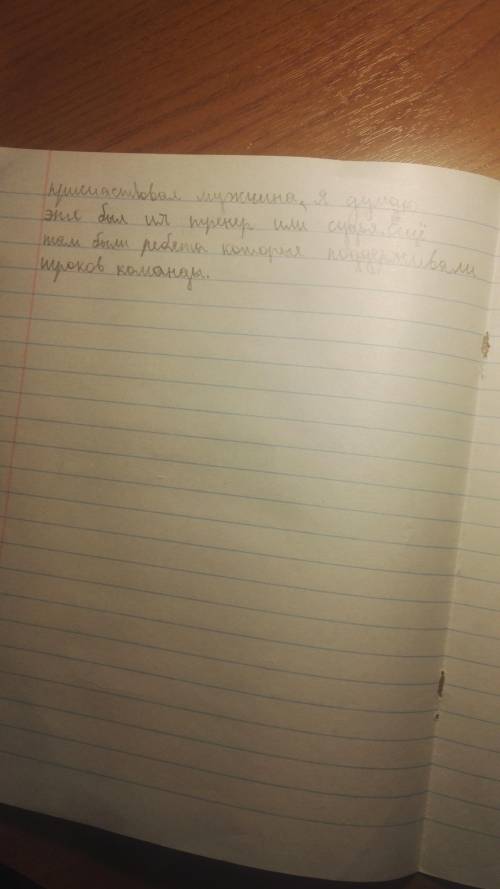 присцаствовал мужчина, я думаю
это был их тренер или судья. Ещё
там были ребяты которыя поддерживали
ироков команды.